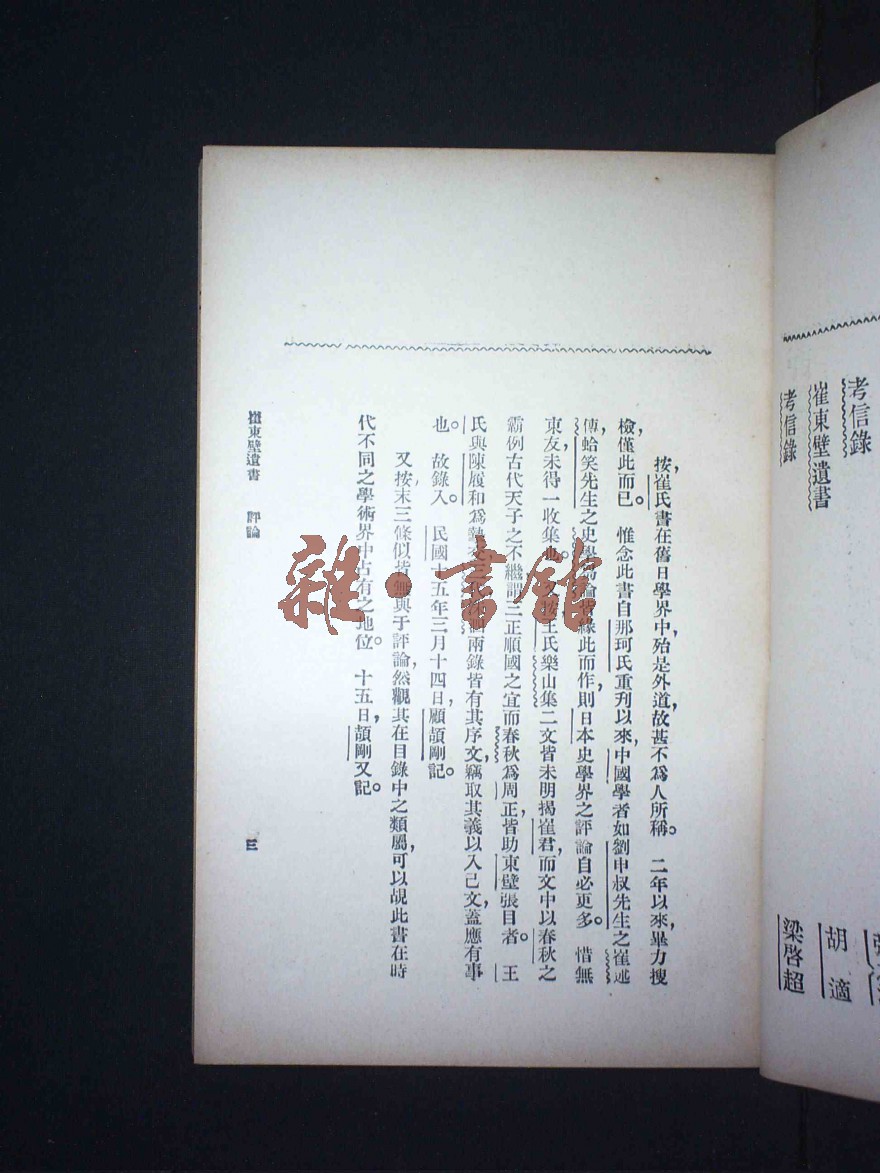 考信錄
崔東壁遺書
考信錄
胡適
梁啓超
按,崔氏書在舊日學界中,殆是外道,故甚不爲人所稱。二年以來,畢力搜
檢,僅此而已。惟念此書自那珂氏重刋以來,中國學者如劉申叔先生之崔述
傳,蛤笑先生之史學論皆緣此而作,則日本史學界之評論自必更多。惜無
東友,未得一收集也。又按,王氏樂山集二文皆未明揭崔君,而文中以春秋之
霸例古代天子之不繼,謂三正順國之宜而春秋爲周正,皆助東壁張目者。王
氏與陳履和爲執友,兩錄皆有其序文,竊取其義以入己文,蓋應有事
也。故錄入。民國十五年三月十四日,顧頡剛記。
又按,末三條似皆無與于評論,然觀其在目錄中之類屬,可以覘此書在時
代不同之學術界中占有之地位。十五日,頡剛又記。
崔東壁遺書 評論
三
雜·書館